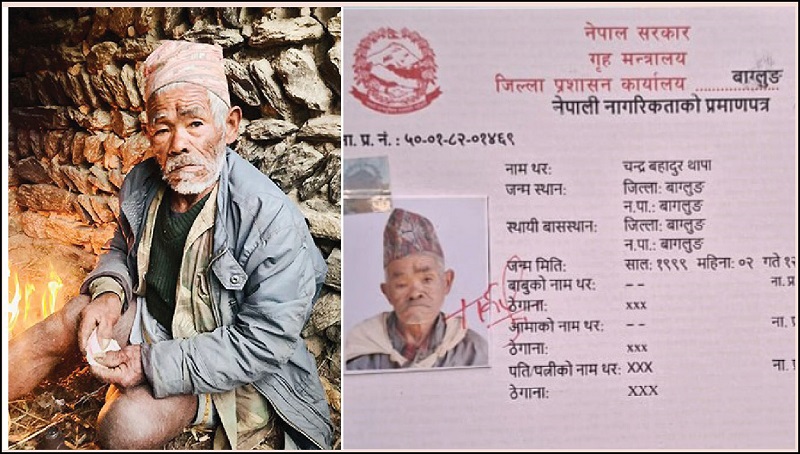 नेपाल सरकार
गृह मन्त्रालय
जिल्ला प्रशासन कार्यालय ................ बाग्लुङ
नेपाली नागरिकताको प्रमाणपत्र
ना. प्र. नं. : ५०-०१-८२-०१४६९
नाम थर: चन्द्र बहादुर थापा
जन्म स्थान: जिल्ला: बाग्लुङ
न.पा.: बागलुङ
स्थायी बासस्थान: जिल्ला: बाग्लुङ
न.पा.: बागलुङ
जन्म मिति: साल: १९९९ महिना: ०२ गते १२
बाबुको नाम थर: -- ना. प्र
ठेगाना: xxx
आमाको नाम थर: -- ना. प्र
ठेगाना: xxx
पति/पत्नीको नाम थर: XXX ना. प्र
ठेगाना: XXX